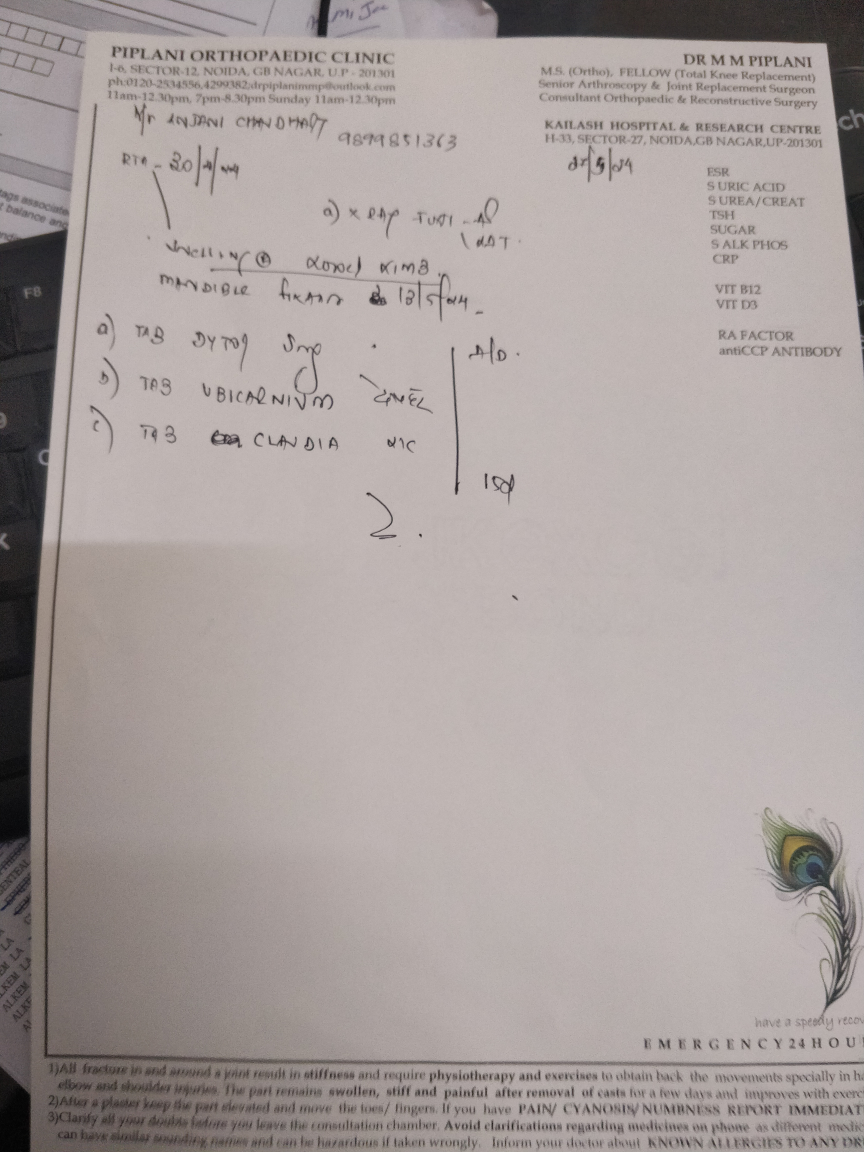 PIPLANI ORTHOPAEDIC CLINIC
I-6, SECTOR-12, NOIDA, GB NAGAR, U.P - 201301
ph:0120-2534556,4299382;drpiplanimmp@outlook.com
11am-12.30pm, 7pm-8.30pm Sunday 11am-12.30pm
DR M M PIPLANI
M.S. (Ortho), FELLOW (Total Knee Replacement)
Senior Arthroscopy & Joint Replacement Surgeon
Consultant Orthopaedic & Reconstructive Surgery
KAILASH HOSPITAL & RESEARCH CENTRE
H-33, SECTOR-27, NOIDA,GB NAGAR,UP-201301
Mr ANJANI
9899851363
RTA - 30/4/24
a) X RAY AP
LAT.
SWELLING
LIMB
MANDIBLE 13/5/24
a) TAB DYTOR 5mg
b) TAB UBICARNIUM
c) TAB CLAUDIA
A/D.
15d
2.
ESR
S URIC ACID
S UREA/CREAT
TSH
SUGAR
S ALK PHOS
CRP
VIT B12
VIT D3
RA FACTOR
antiCCP ANTIBODY
have a speedy recov
EMERGENCY 24 HOU
1)All fracture in and around a joint result in stiffness and require physiotherapy and exercises to obtain back the movements specially in ha
elbow and shoulder injuries. The part remains swollen, stiff and painful after removal of casts for a few days and improves with exerc
2)After a plaster keep the part elevated and move the toes/ fingers. If you have PAIN/ CYANOSIS/ NUMBNESS REPORT IMMEDIAT
3)Clarify all your doubts before you leave the consultation chamber. Avoid clarifications regarding medicines on phone as different medic
can have similar sounding names and can be hazardous if taken wrongly. Inform your doctor about KNOWN ALLERGIES TO ANY DR
F8